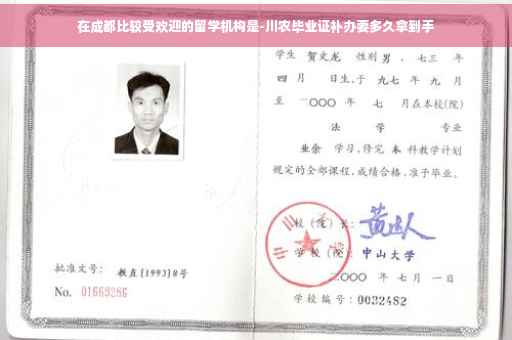 在成都比较受欢迎的留学机构是-川农毕业证补办要多久拿到手
学生 贺文龙 性别 男 、七三 年
四 月 日生,于 九七 年 九 月
至 二〇〇〇 年 七 月在本校(院)
法 学 专业
业余 学习,修完 本 科教学计划
规定的全部课程,成绩合格,准予毕业。
校(院)长:
学校(院):中山大学
二〇〇〇 年 七 月 一 日
批准文号: 教直[1993]8号
No. 01669286
学校编号:0032482